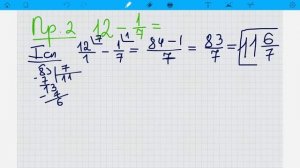 Пр. 2 12 - 1/7 =
I сп 12/1 - 1/7 = 84-1/7 = 83/7 = 11 6/7
83 | 7
- 7 11
13
- 7
6